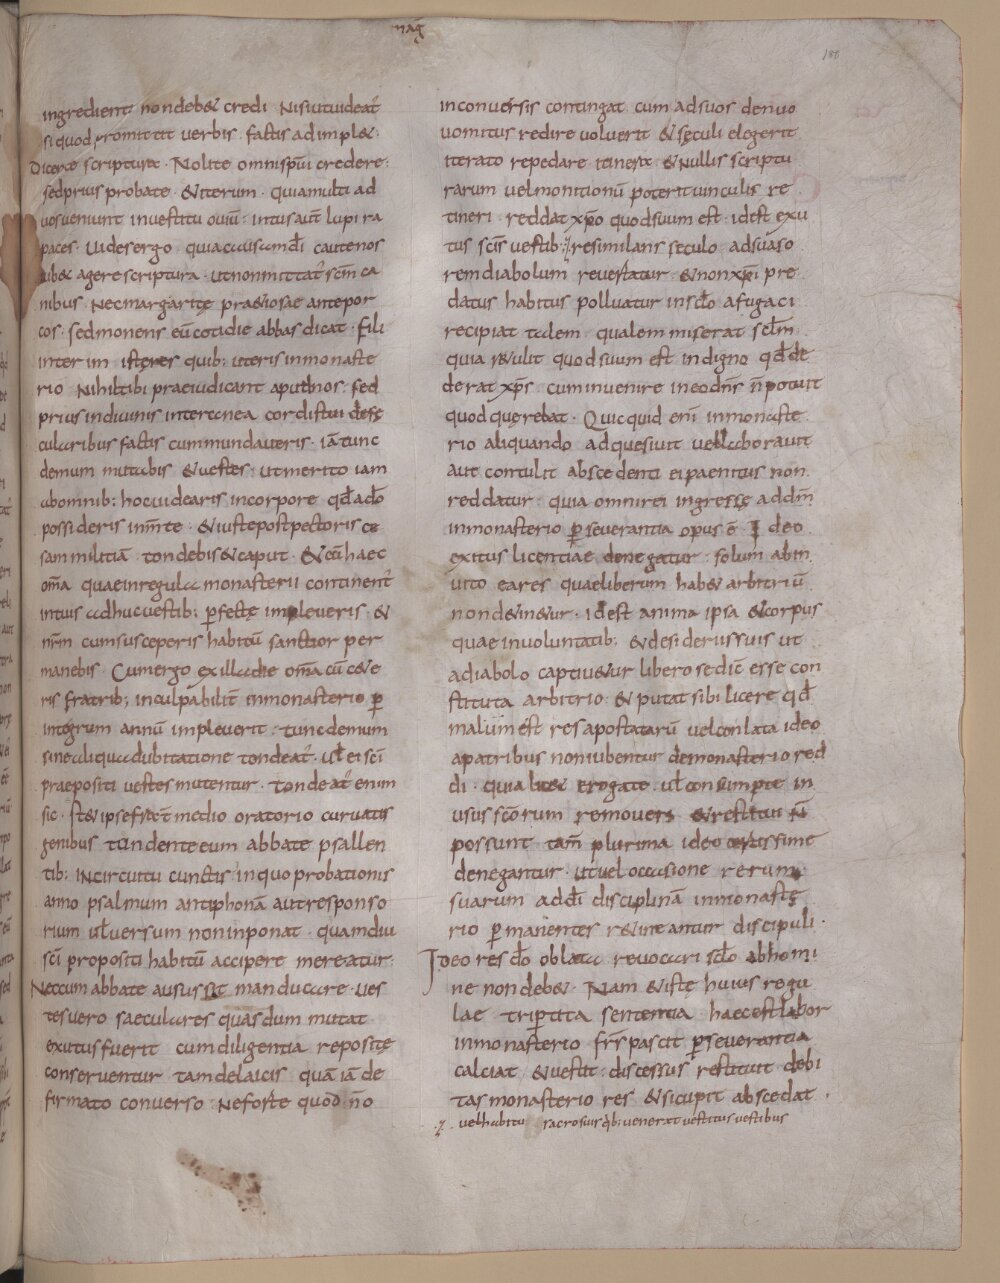 mag̅
188
ingredienti non debet credi Nisi uiuideat̅
si quod promittit uerbis factis adimplet
Dicente scriptura · Nolite omni sp̅ui credere·
sed prius probate · & iterum · quia multi ad
uos ueniunt in uestitu ouiu̅ · intus aut̅ lupi ra
paces · Uides ergo quia
iubet agere scriptura · ut non mittat̅ sc̅m ca
nibus Nec margaritę praetiosae ante por
cos · sed monens eu̅ cotidie abbas dicat · fili
interim isteres quib; uteris in monaste
rio Nihil tibi praeiudicant aput nos · sed
prius indiuinis interanea cordis tui
cularibus factis cum mundaueris · ia̅ tunc
demum mutabis & uestes · ut merito iam
abomnib; hoc uidearis in corpore qd̅ ad̅o
possideris in m̅te · & iuste post pectoris ce
sam militia̅ tondebis & caput · & cu̅ haec
om̅a quae in regula monasterii continent̅
intus adhuc uestib; p̲fectę impleueris · &
nr̅m cum susceperis habitu̅ sanctior per
manebis · Cum ergo ex illa die om̅a cu̅ cete
ris fratrib; inculpabilit̅ in monasterio p̲
integrum annu̅ impleuerit · tunc demum
sine aliqua dubitatione tondeat̅ · ul̅ ei sc̅i
praepositi uestes mutentur · tondeat̅ enim
sic · stet ipse fr̅ et̅ medio oratorio curuatis
genibus tundente eum abbate psallen
tib; in circuitu cunctis · in quo probationis
anno psalmum antiphona̅ aut responso
rium ul̅ uersum non inponat · quamdiu
sc̅i propositi habitu̅ accipere mereatur·
Nec cum abbate ausus sit manducare · ues
tes uero saeculares quas dum mutat
exutus fuerit cum diligentia repositę
conserventur tam de laicis qua̅ ia̅ de
firmato conuerso · Ne forte quod n̅o
in conuersis contingat cum ad suos denuo
uomitus redire uoluerit & sęculi elegerit
iterato repedare itinera & nullis scriptu
rarum uel monitionu̅ poterit uinculis re
tineri · reddat xp̅o quod suum est · id est exu
tus sc̅is uestib; resimilans seculo adsuaso
rem diabolum reuertatur & non xp̅i pre
datus habitus polluatur in sc̅lo a fugaci
recipiat talem qualem miserat sc̅lm
quia retulit quod suum est indigno qd̅ de
derat xp̅s cum inuenire in eo dn̅s n̅ potuit
quod quęrebat · Quicquid eni̅ in monaste
rio aliquando adquesiuit uel laborauit
aut contulit abscedenti ei paenitus non
reddatur · quia omni rei ingressę ad dm̅
in monasterio p̲seuerantia opus e̅ Ideo
exitus licentiae denegatur · solum abin
uito ea res quae liberum habet arbitriu̅
non detinetur · id est anima ipsa & corpus
quae in uoluntatib; & desideriis suis ut
a diabolo captiuetur libero se dic̅ esse con
stituta arbitrio · & putat sibi licere qd̅
malum est res apostataru̅ uel conlata ideo
a patribus non iubentur de monasterio red
di · quia erogate · ul̅ consumpte in
usus sc̅orum remouers & restitui n̅
possunt tam̅ plurima ideo certissime
denegantur · ut uel occasione rerum
suarum ad di̅ disciplina̅ in monastę
rio p̲manentes retineantur discipuli ·
Ideo res d̅o oblata reuocari sc̅lo ab homi
ne non debet · Nam & istę huius regu
lae tripartita sententia haec est labor
in monasterio fr̅s pascit p̲seuerantia
calciat & uestit · discessus restituit debi
tas monasterio res & sicupit abscedat ·
uel habitu sacrosius qb; uenerat uestitus uestibus